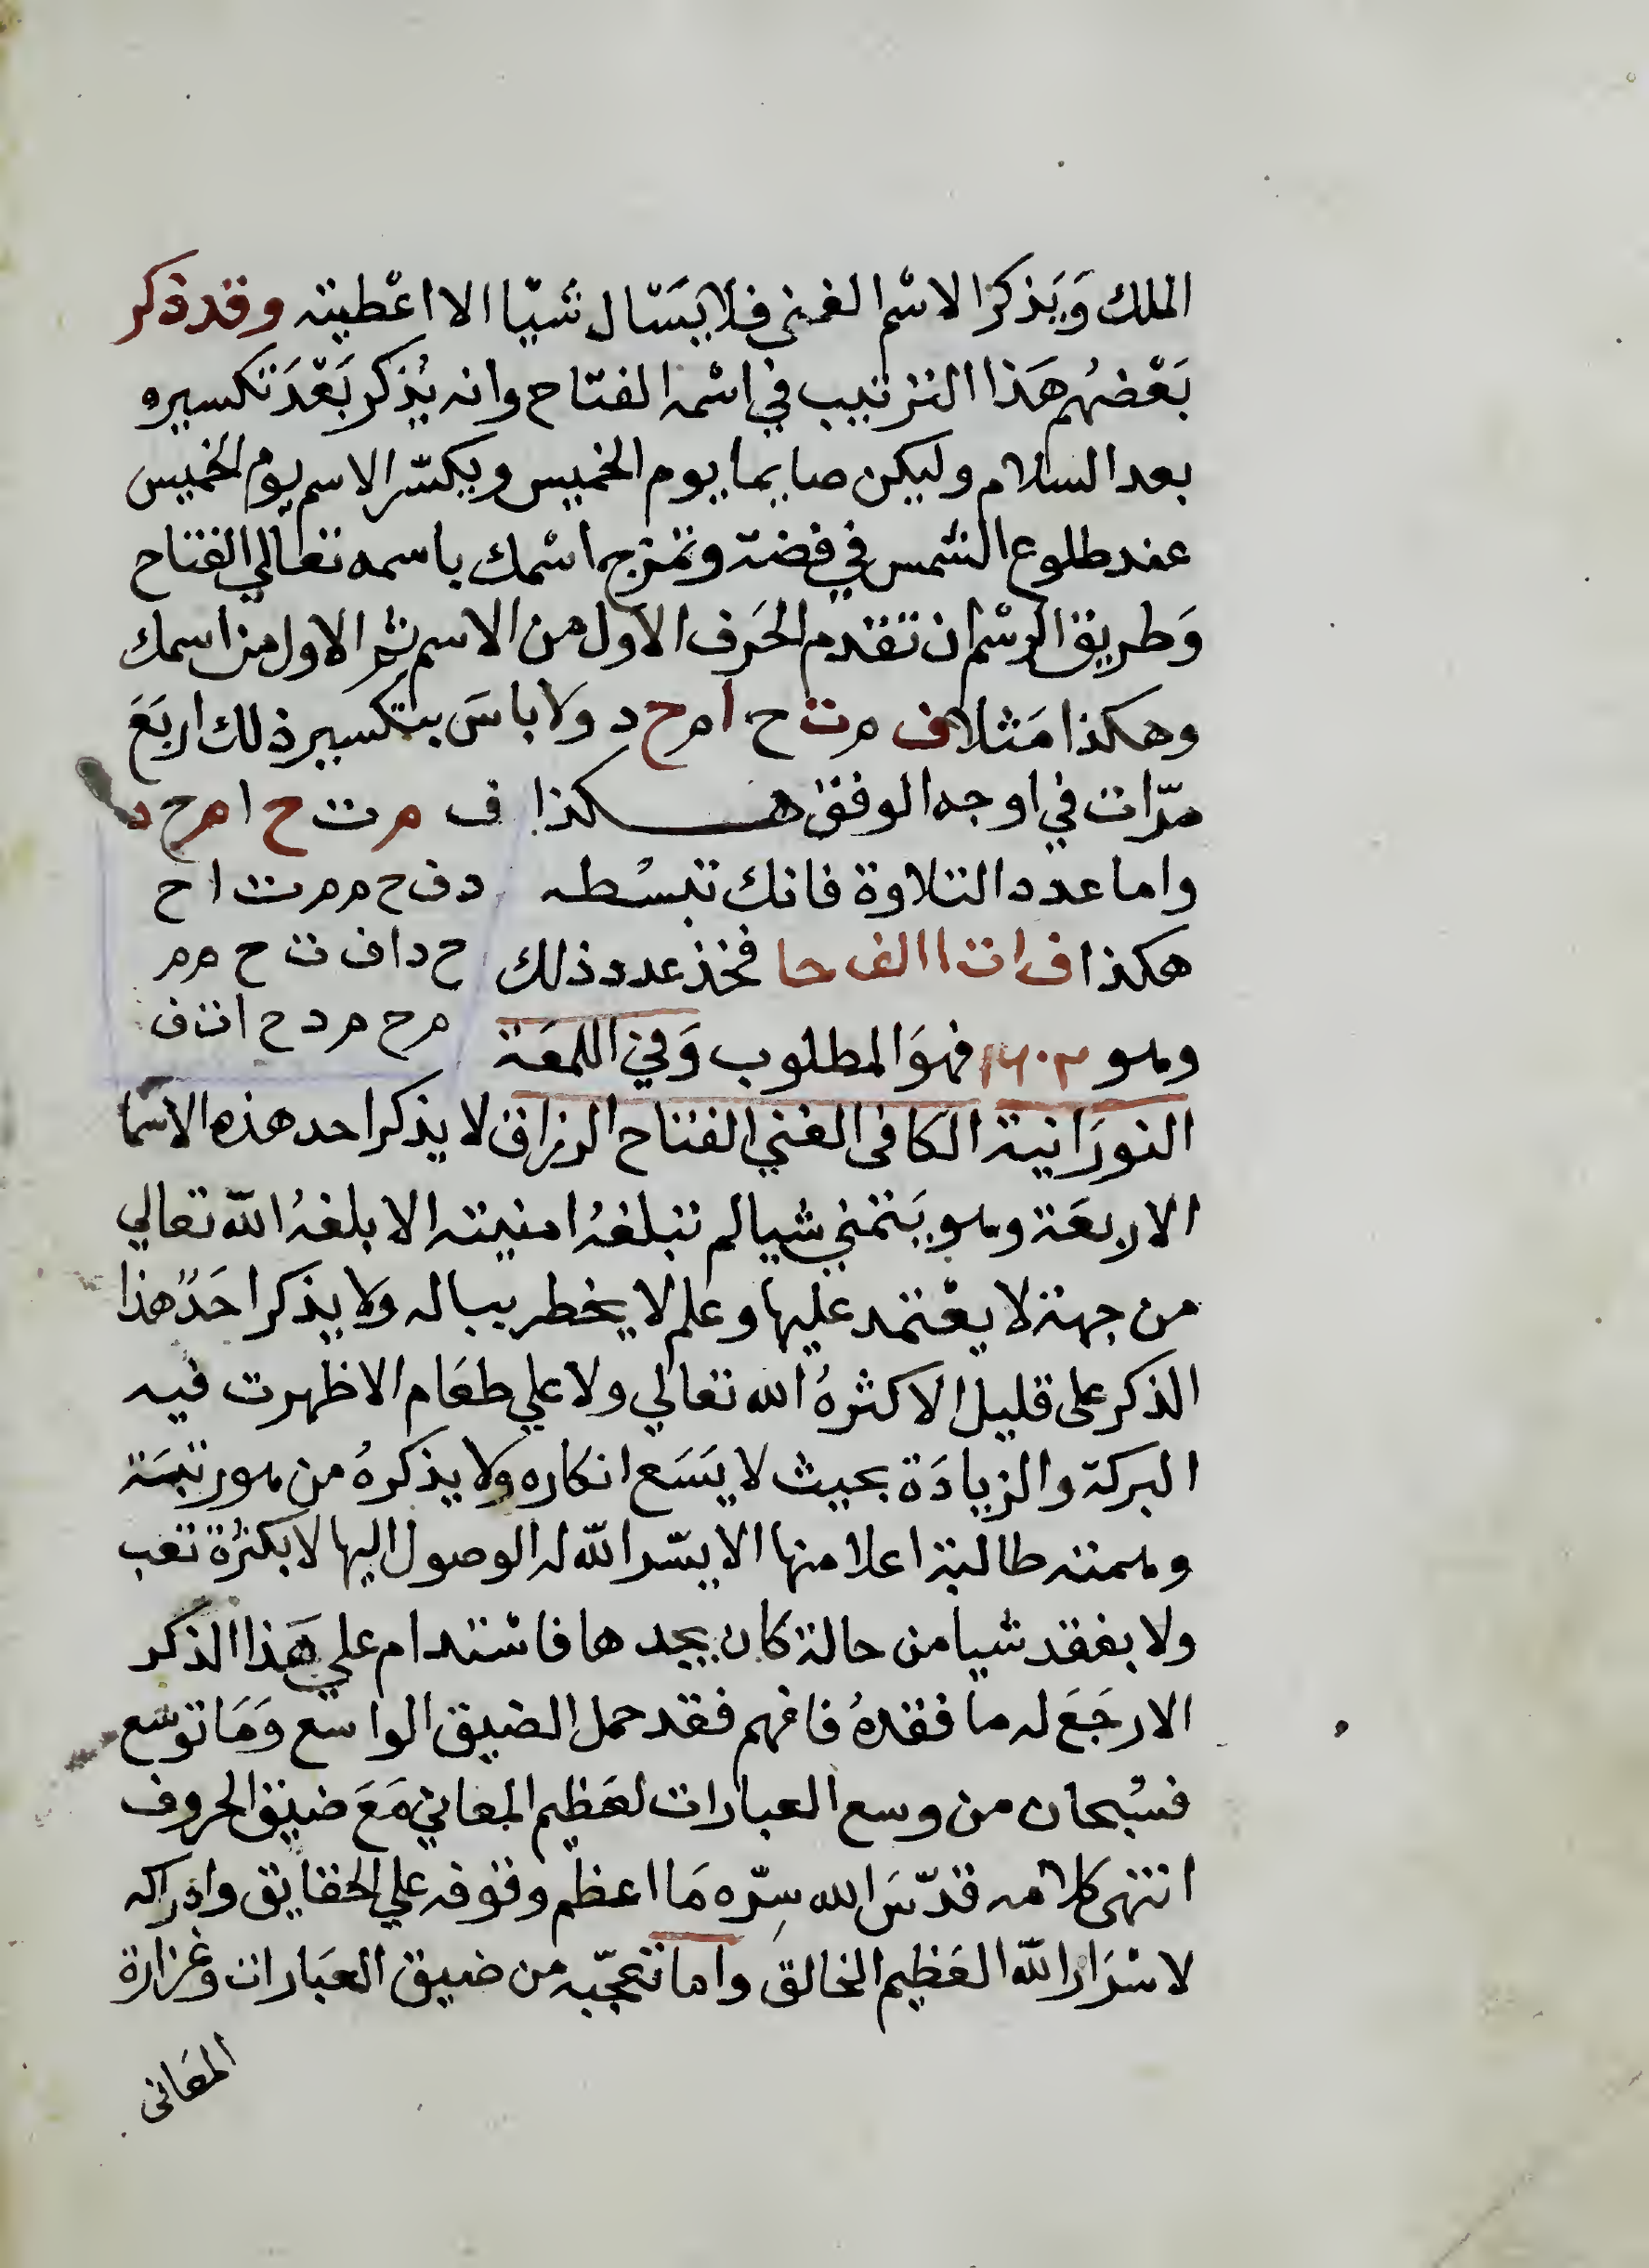 الملك وَيَذكرُ الاسْم الغني فلا يَسَال شَيْا الا اعْطيته وقد ذكر
بَعْضهُم هَذا الترتيب في اسْمه الفتاح وانه يُذكر بَعْدَ تكسيره
بعد السلام وليكن صايما يوم الخميس ويكسّر الاسم يوم الخميس
عند طلوع الشمس في فضة وتمزج اسْمك باسمه تعالي الفتاح
وَطريق الرسْم ان تقدم الحَرف الاول من الاسم ثم الاول من اسمك
وهكذا مَثلا ف م ت ح ا م ح د ولا باسَ بتكسير ذلك اربَعَ
مرّات في اوجه الوفق هـــكذا ف م ت ح ا م ح د
واما عدد التلاوة فانك تبسُطه د ف ح م م ت ا ح
هكذا ف ا ت ا ا لف حا فخذ عدد ذلك ح د ا ف ت ح م م
وهو فهوَ المطلوب وَفي اللمعَة م ح م د ح ا ت ف
النورَانية الكافى الغني الفتاح الرزاق لا يذكر احد هذه الاسْما
الاربعَة وهو يَتمني شيا لم تبلغهُ امنيته الا بلغهُ الله تعالي
من جهة لا يعْتمد عليها وعلم لا يخطر بباله ولا يذكر احَدٌ هذا
الذكر على قليل الا كثرهُ الله تعالي ولا علي طعَام الا ظهرت فيه
البركة والزيادَة بحيث لا يَسَع انكاره ولا يذكرهُ من هو رتبَة
وهمته طالبة اعلا منها الا يسّر الله له الوصول اليها لا بكثرُة تعب
ولا يفقد شيا من حالة كان يجدها فاسْتدام علي هَذا الذكر
الا رجَعَ له ما فقدهُ فافهم فقد حمل الضيق الواسَع وَمَا توسّع
فسُبحان من وسع العبارات لعَظيم المعاني مَعَ ضيق الحروف
انتهى كلامه قدّسَ الله سِرّه مَا اعظم وقوفه علي الحقايق وادراكه
لاسْرَار الله العَظيم الخالق واما تعجّبه من ضيق العبَارات وغزارة
المعَانى